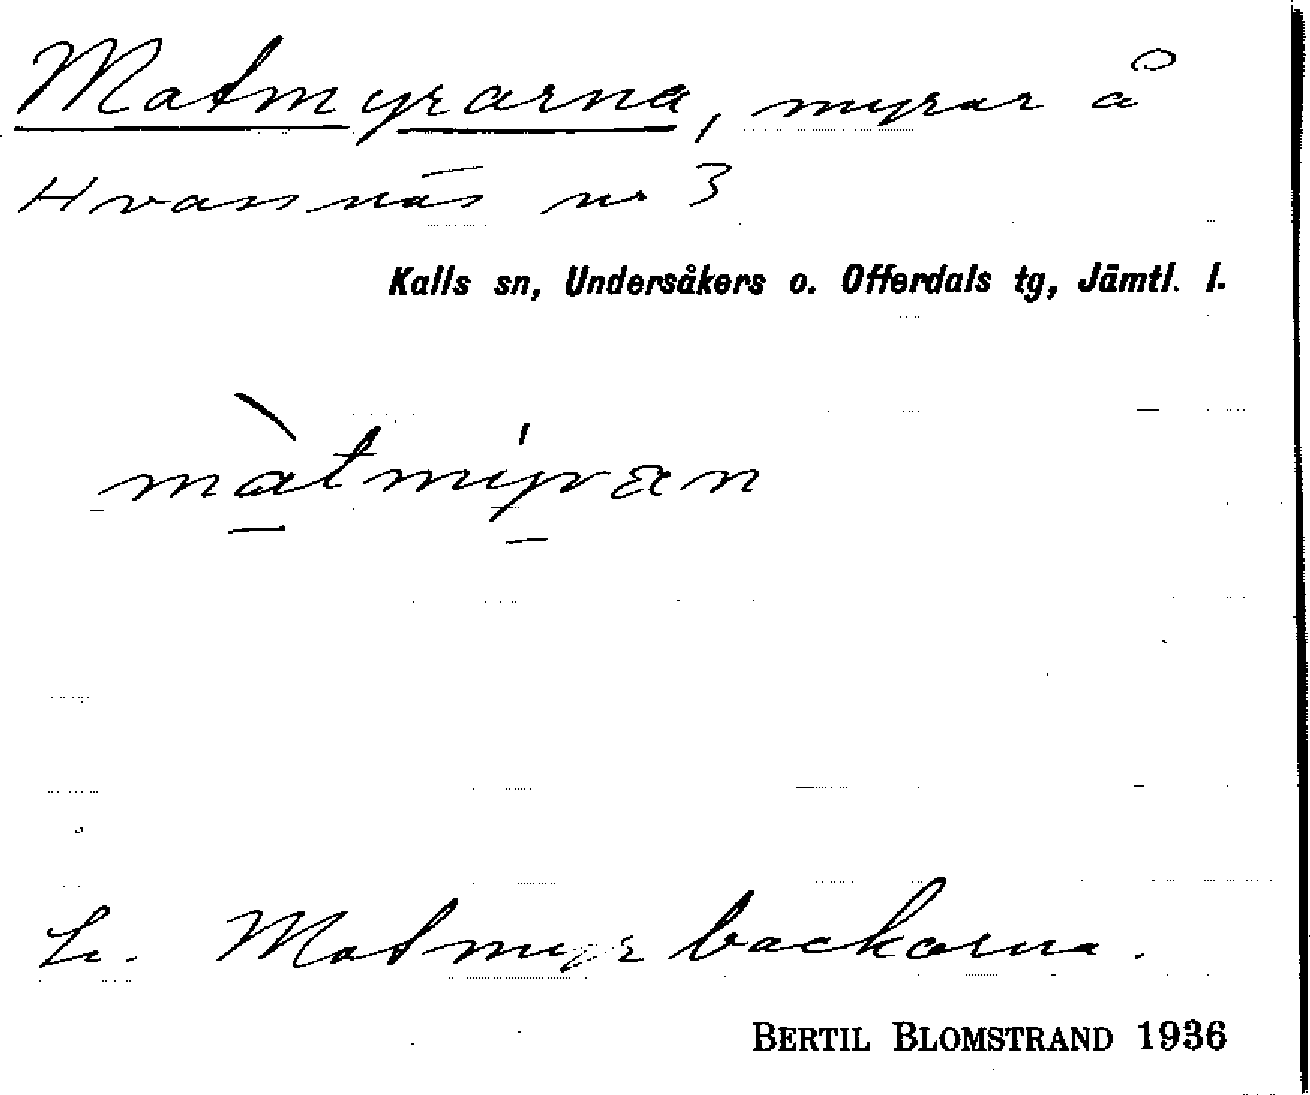 Matmyrarna, myrar å
Hvassnäs nr 3
Kalls sn, Undersåkers o. Offerdals tg, Jämtl. l.
màtmýran
Matmyrbackarna.
BERTIL BLOMSTRAND 1936